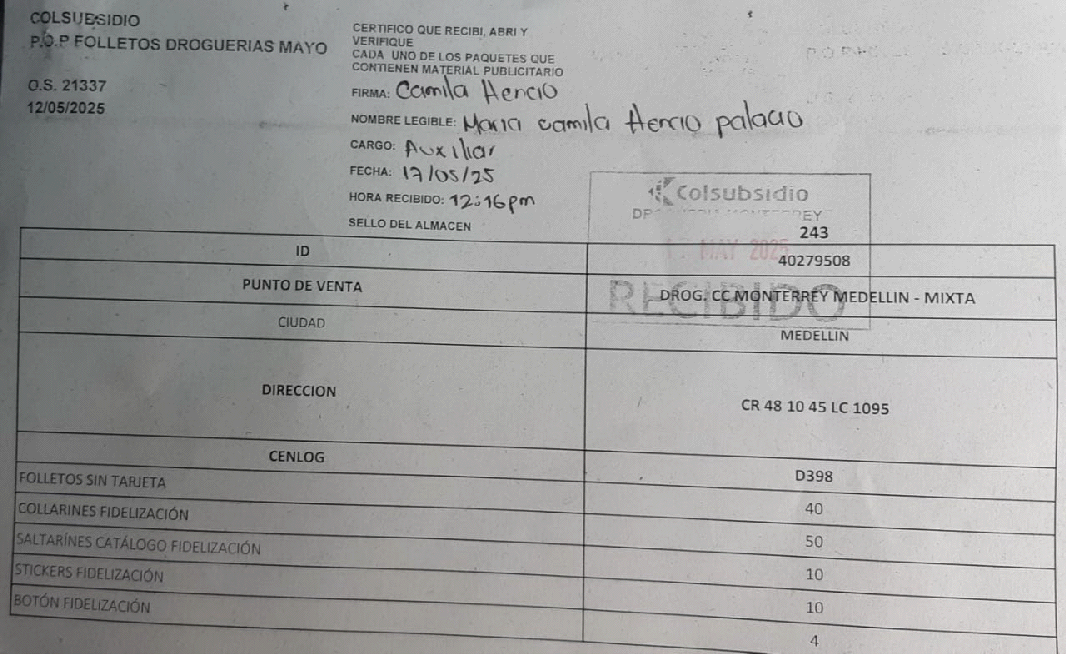 COLSUESIDIO
P.O.P FOLLETOS DROGUERIAS MAYO
O.S. 21337
12/05/2025
CERTIFICO QUE RECIBI, ABRI Y
VERIFIQUE
CADA UNO DE LOS PAQUETES QUE
CONTIENEN MATERIAL PUBLICITARIO
FIRMA: Camila Hencio
NOMBRE LEGIBLE: Maria camila Hencio palacio
CARGO: Auxiliar
FECHA: 17/05/25
HORA RECIBIDO: 12:16pm
SELLO DEL ALMACEN
Colsubsidio
MAY 2025
RECIBIDO
243
ID 40279508
PUNTO DE VENTA DROG. CC MONTERREY MEDELLIN - MIXTA
CIUDAD MEDELLIN
DIRECCION CR 48 10 45 LC 1095
CENLOG D398
FOLLETOS SIN TARJETA 40
COLLARINES FIDELIZACIÓN 50
SALTARÍNES CATÁLOGO FIDELIZACIÓN 10
STICKERS FIDELIZACIÓN 10
BOTÓN FIDELIZACIÓN 4